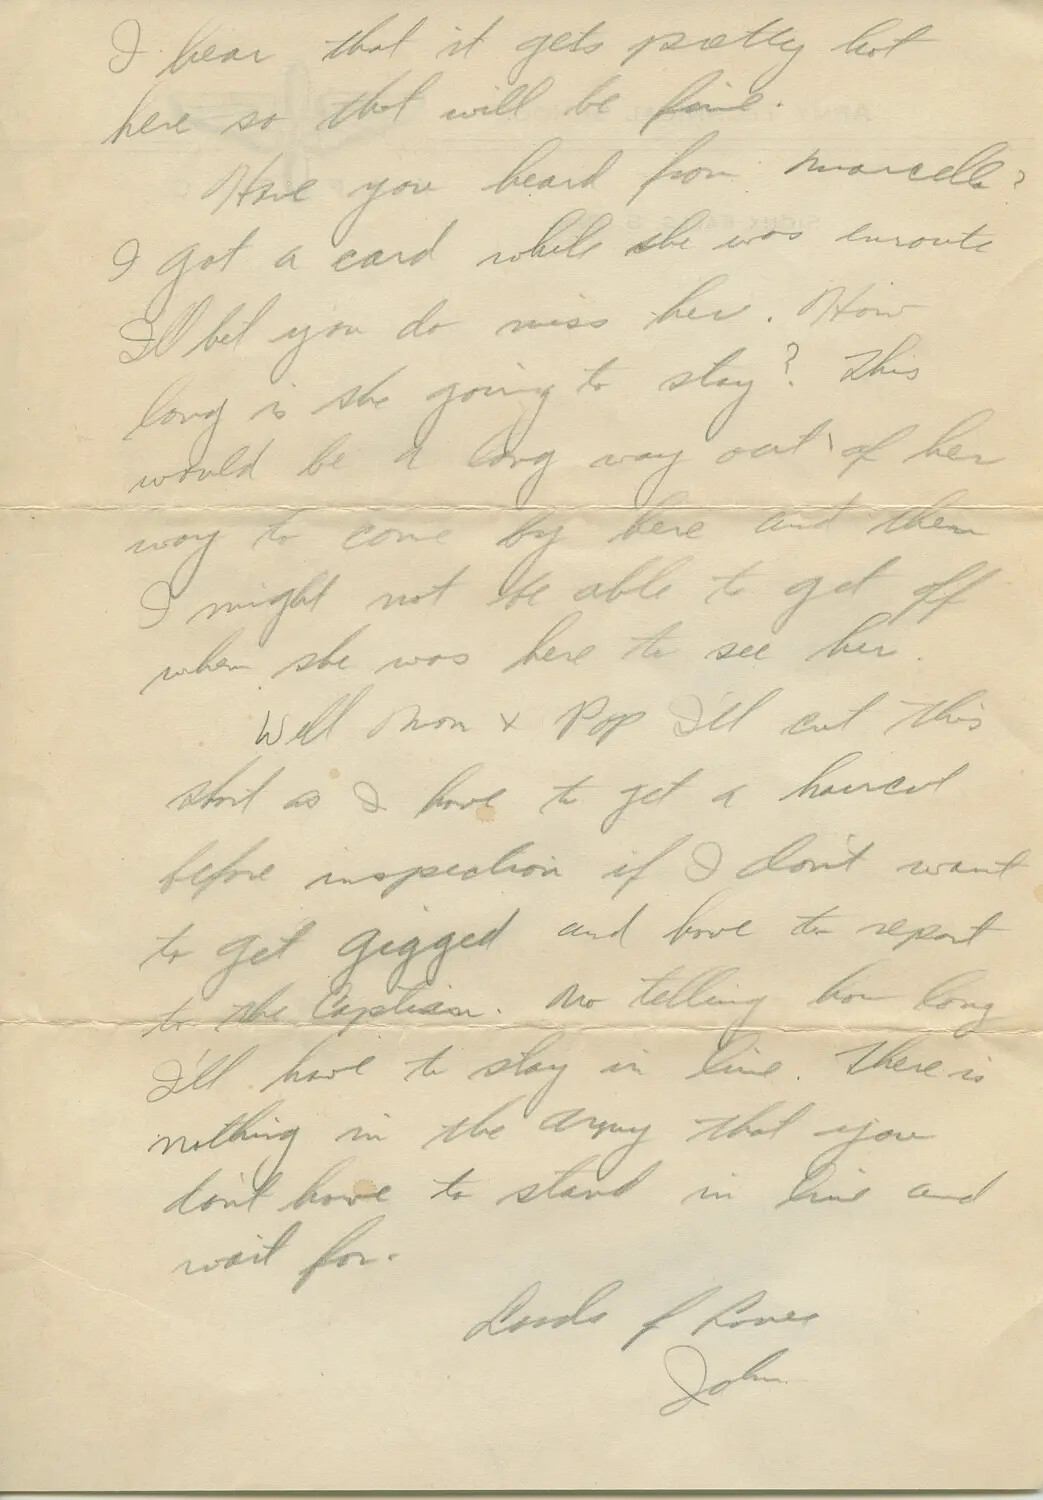 I hear that it gets pretty hot
here so that will be fine.
Have you heard from Marcella?
I got a card while she was enroute
I'll bet you do miss her. How
long is she going to stay? This
would be a long way out of her
way to come by here and then
I might not be able to get off
when she was here to see her.
Well Mom & Pop I'll cut this
short as I have to get a haircut
before inspection if I don't want
to get gigged and have to report
to the Captian. No telling how long
I'll have to stay in line. There is
nothing in the army that you
don't have to stand in line and
wait for.
Loads of Love
John